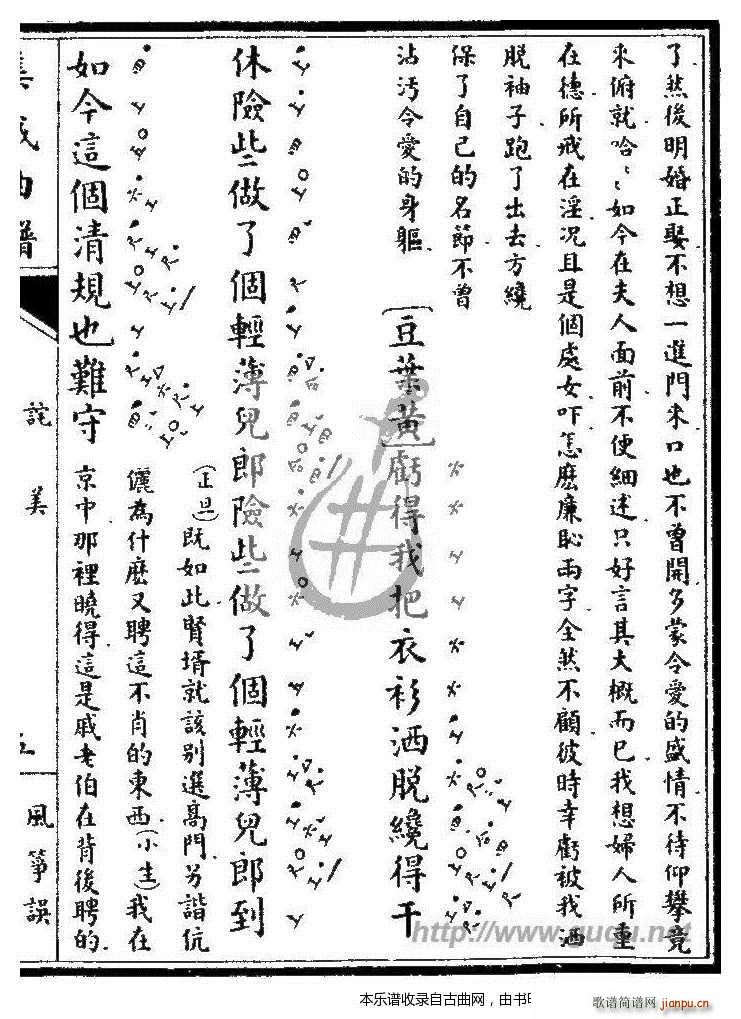 了然後明婚正娶不想一進門來口也不曾開多蒙令愛的盛情不待仰攀竟
來俯就哈〻如今在夫人面前不便細述只好言其大概而已我想婦人所重
在德所戒在淫况且是個處女吓怎麽廉恥兩字全然不顧彼時幸虧被我洒
脫袖子跑了出去方纔
保了自己的名節不曾
沾汚令愛的身軀
〔豆葉黃〕虧得我把衣衫洒脫纔得干
休險些做了個輕薄兒郎險些做了個輕薄兒郎到
(正旦)既如此賢壻就該别選高門另諧伉
儷為什麽又聘這不肖的東西(小生)我在
如今這個清規也難守
京中那裡曉得這是戚老伯在背後聘的
集成曲譜
詫美
五
風箏誤
http://www.guqu.net
本乐谱收录自古曲网，由书
歌谱简谱网
jianpu.cn